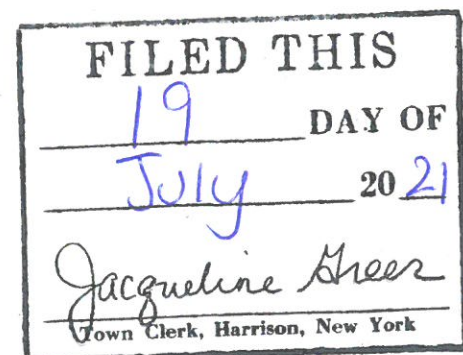 FILED THIS
19 DAY OF
July 20 21
Jacqueline Greer
Town Clerk, Harrison, New York